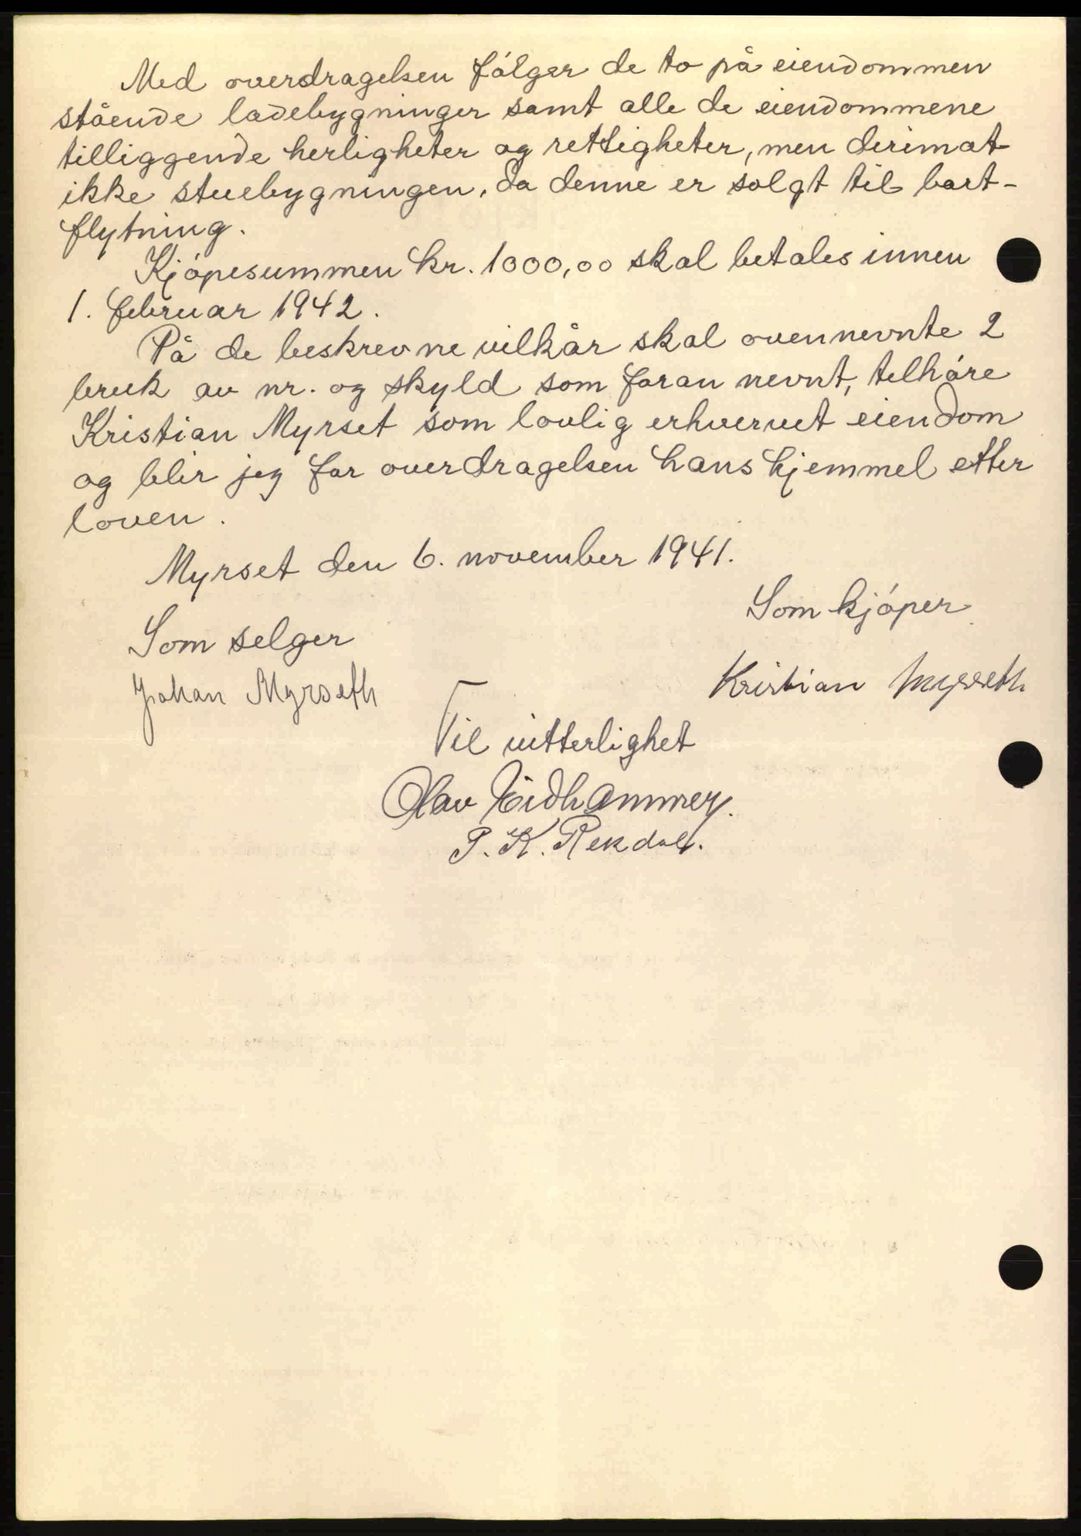 Med overdragelsen følger de to på eiendommen
stående ladebygninger samt alle de eiendommene
tilliggende herligheter og rettigheter, men derimot
ikke stuebygningen, da denne er solgt til bort-
flytning.
Kjøpesummen kr. 1000,00 skal betales innen
1. februar 1942.
På de beskrevne vilkår skal ovennevnte 2
bruk av nr. og skyld som foran nevnt, telhøre
Kristian Myrset som lovlig erhvervet eiendom
og blir jeg for overdragelsen hans hjemmel efter
loven.
Myrset den 6. november 1941.
Som kjøper
Som selger
Kristian Myrseth
Johan Myrseth
Til vitterlighet
Olav Eidhammer.
P. K. Rekdal.